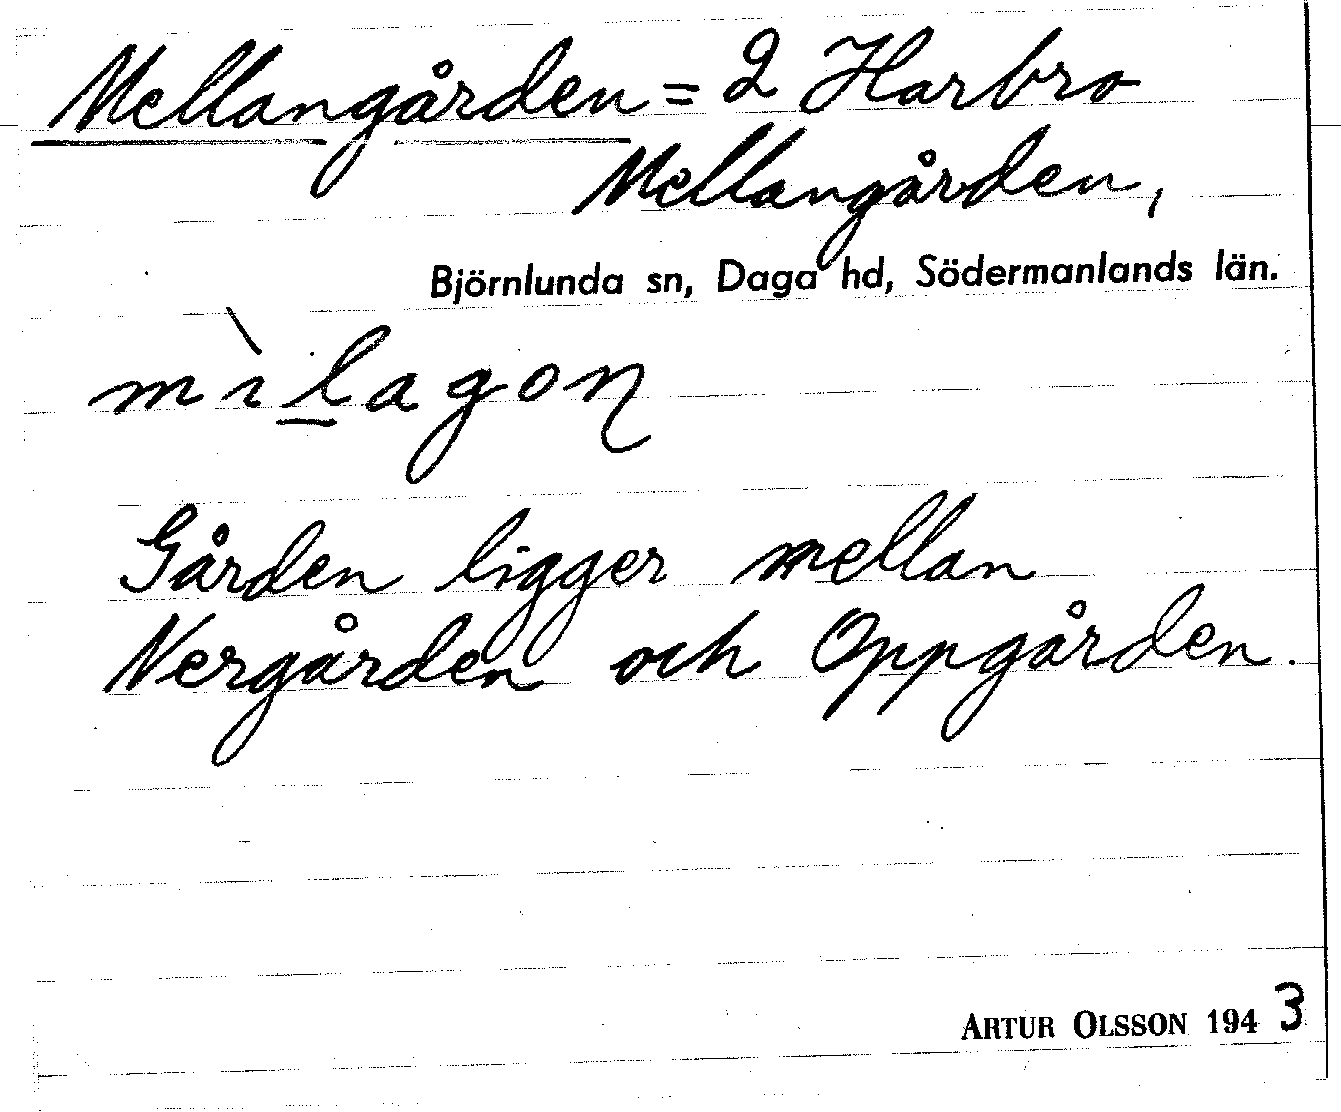 Mellangården = 2 Harbro
Mellangården,
Björnlunda sn, Daga hd, Södermanlands län.
mìl̲agoɳ
Gården ligger mellan
Nergården och Oppgården.
ARTUR OLSSON 1943